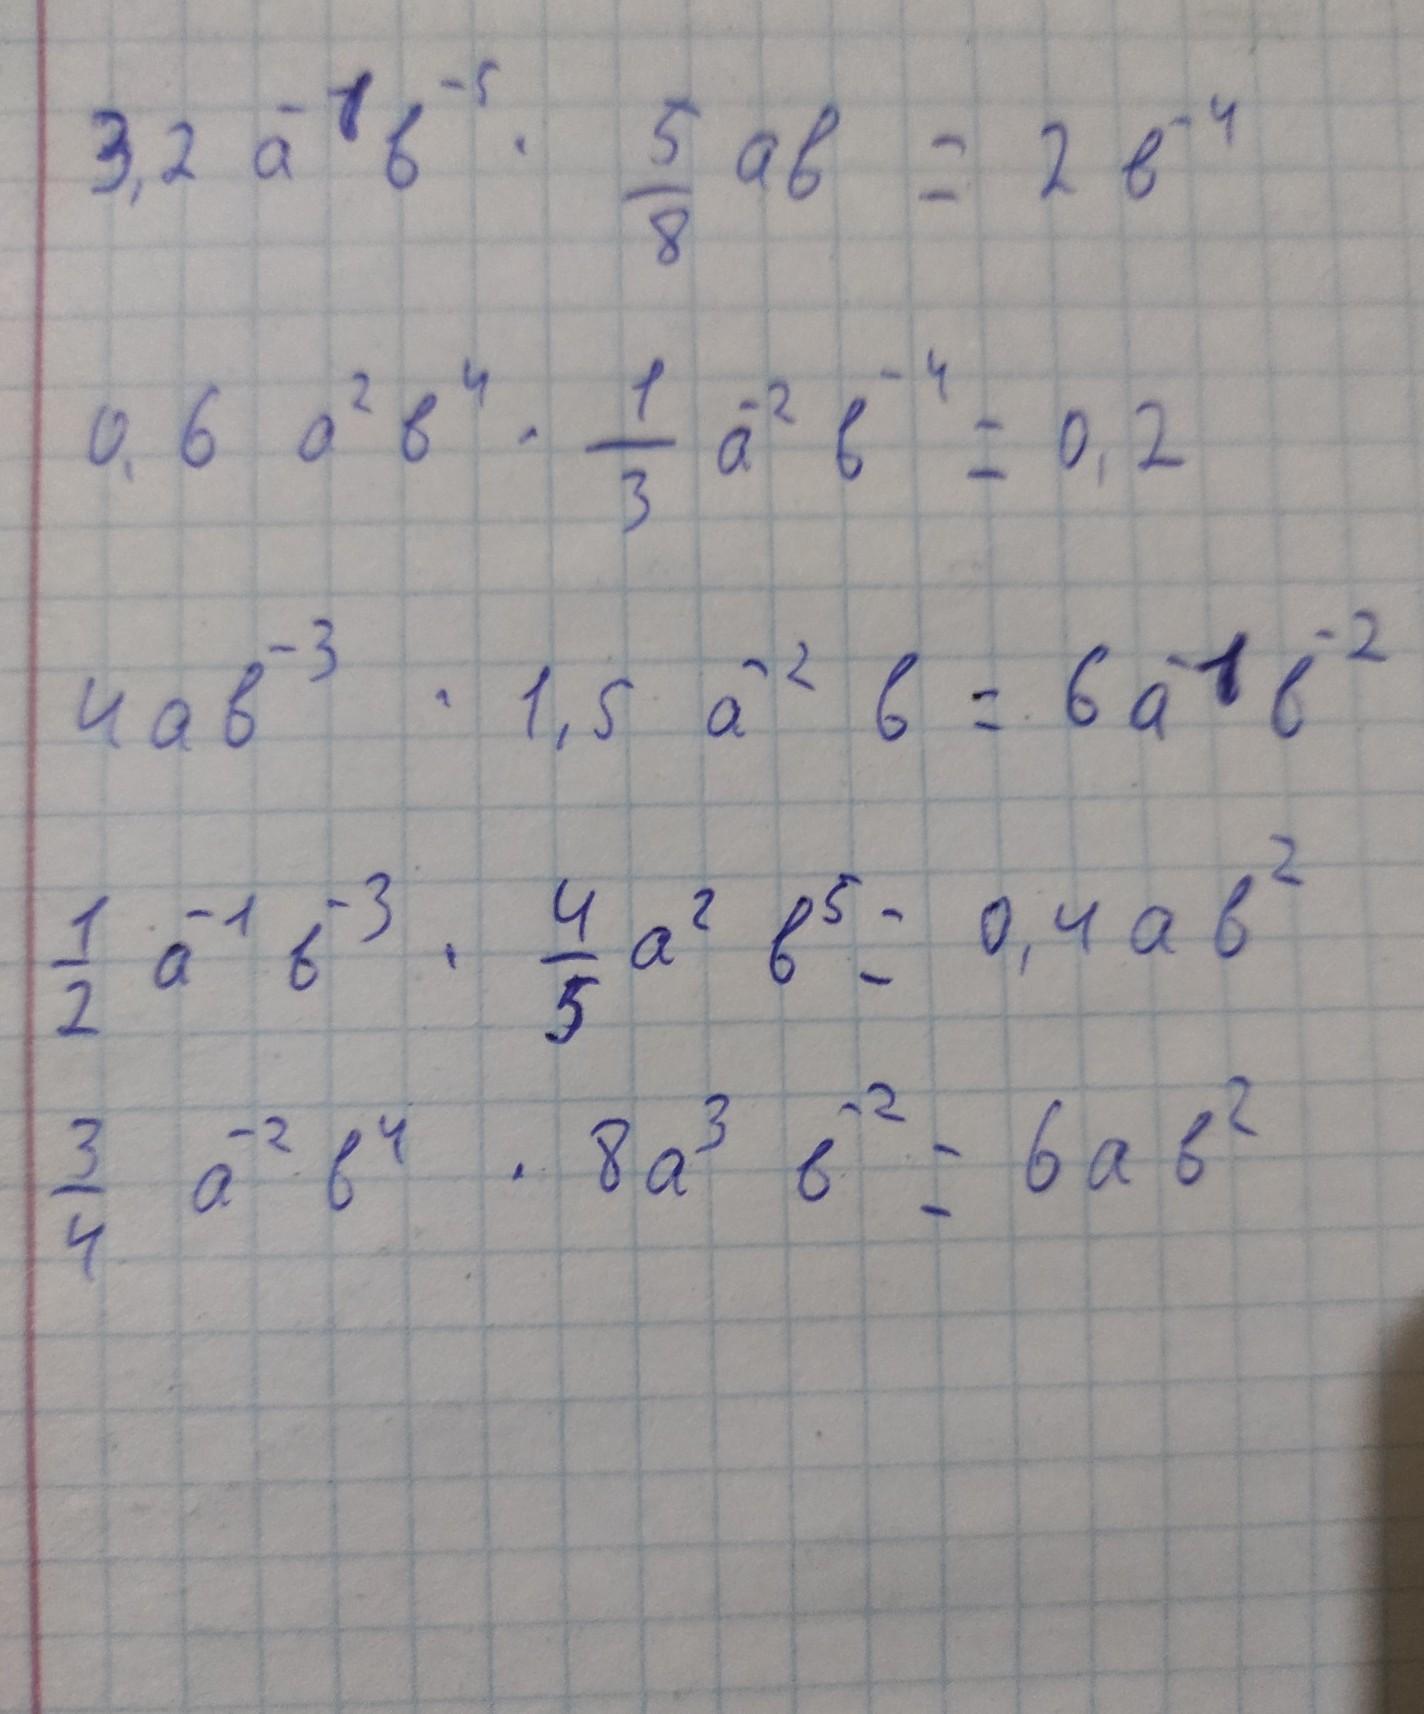 3,2 a⁻¹ b⁻⁵ · 5/8 ab = 2 b⁻⁴
0,6 a² b⁴ · 1/3 a⁻² b⁻⁴ = 0,2
4ab⁻³ · 1,5 a⁻² b = 6a⁻¹ b⁻²
1/2 a⁻¹ b⁻³ · 4/5 a² b⁵ = 0,4 a b²
3/4 a⁻² b⁴ · 8a³ b⁻² = 6a b²